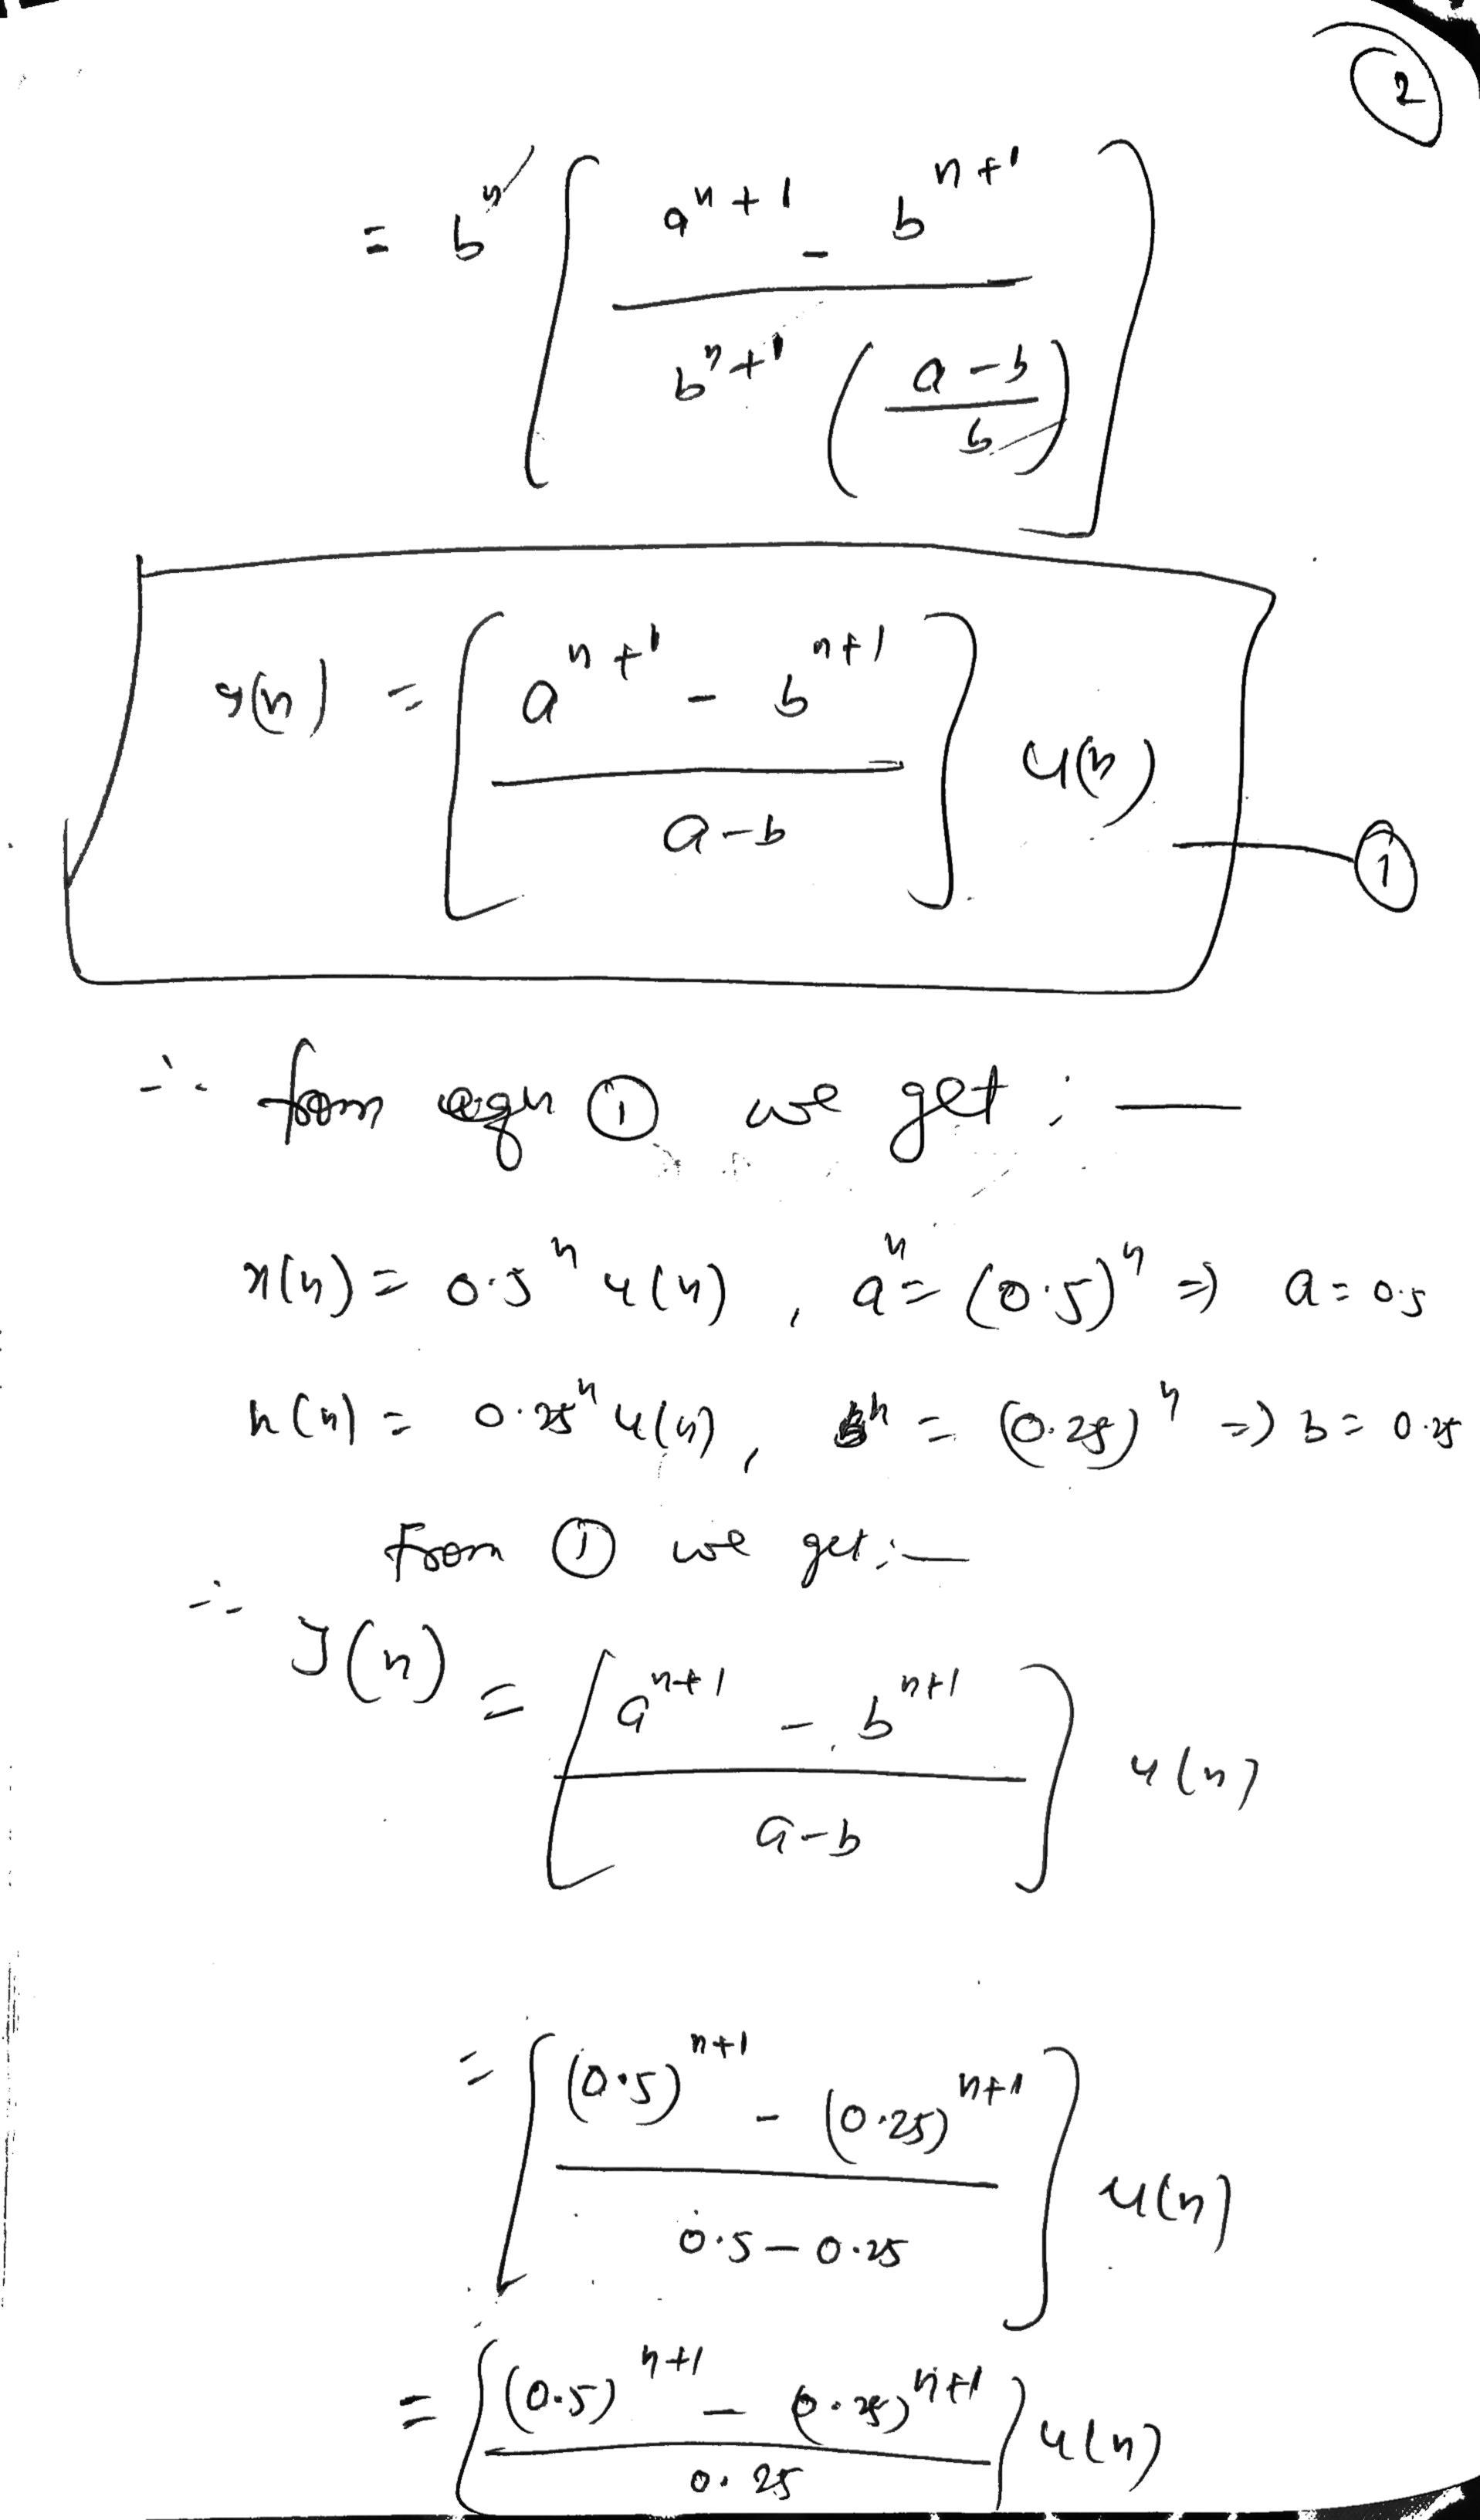 2
= b^n [ (a^{n+1} - b^{n+1}) / (b^{n+1} ((a-b)/b)) ]
y(n) = [ (a^{n+1} - b^{n+1}) / (a-b) ] u(n) — ①
∴ from eqn ① we get :—
x(n) = 0.5^n u(n) , a^n = (0.5)^n ⇒ a = 0.5
h(n) = 0.25^n u(n) , b^n = (0.25)^n ⇒ b = 0.25
From ① we get :—
∴ y(n) = [ (a^{n+1} - b^{n+1}) / (a-b) ] u(n)
= [ ((0.5)^{n+1} - (0.25)^{n+1}) / (0.5 - 0.25) ] u(n)
= [ ((0.5)^{n+1} - (0.25)^{n+1}) / 0.25 ] u(n)